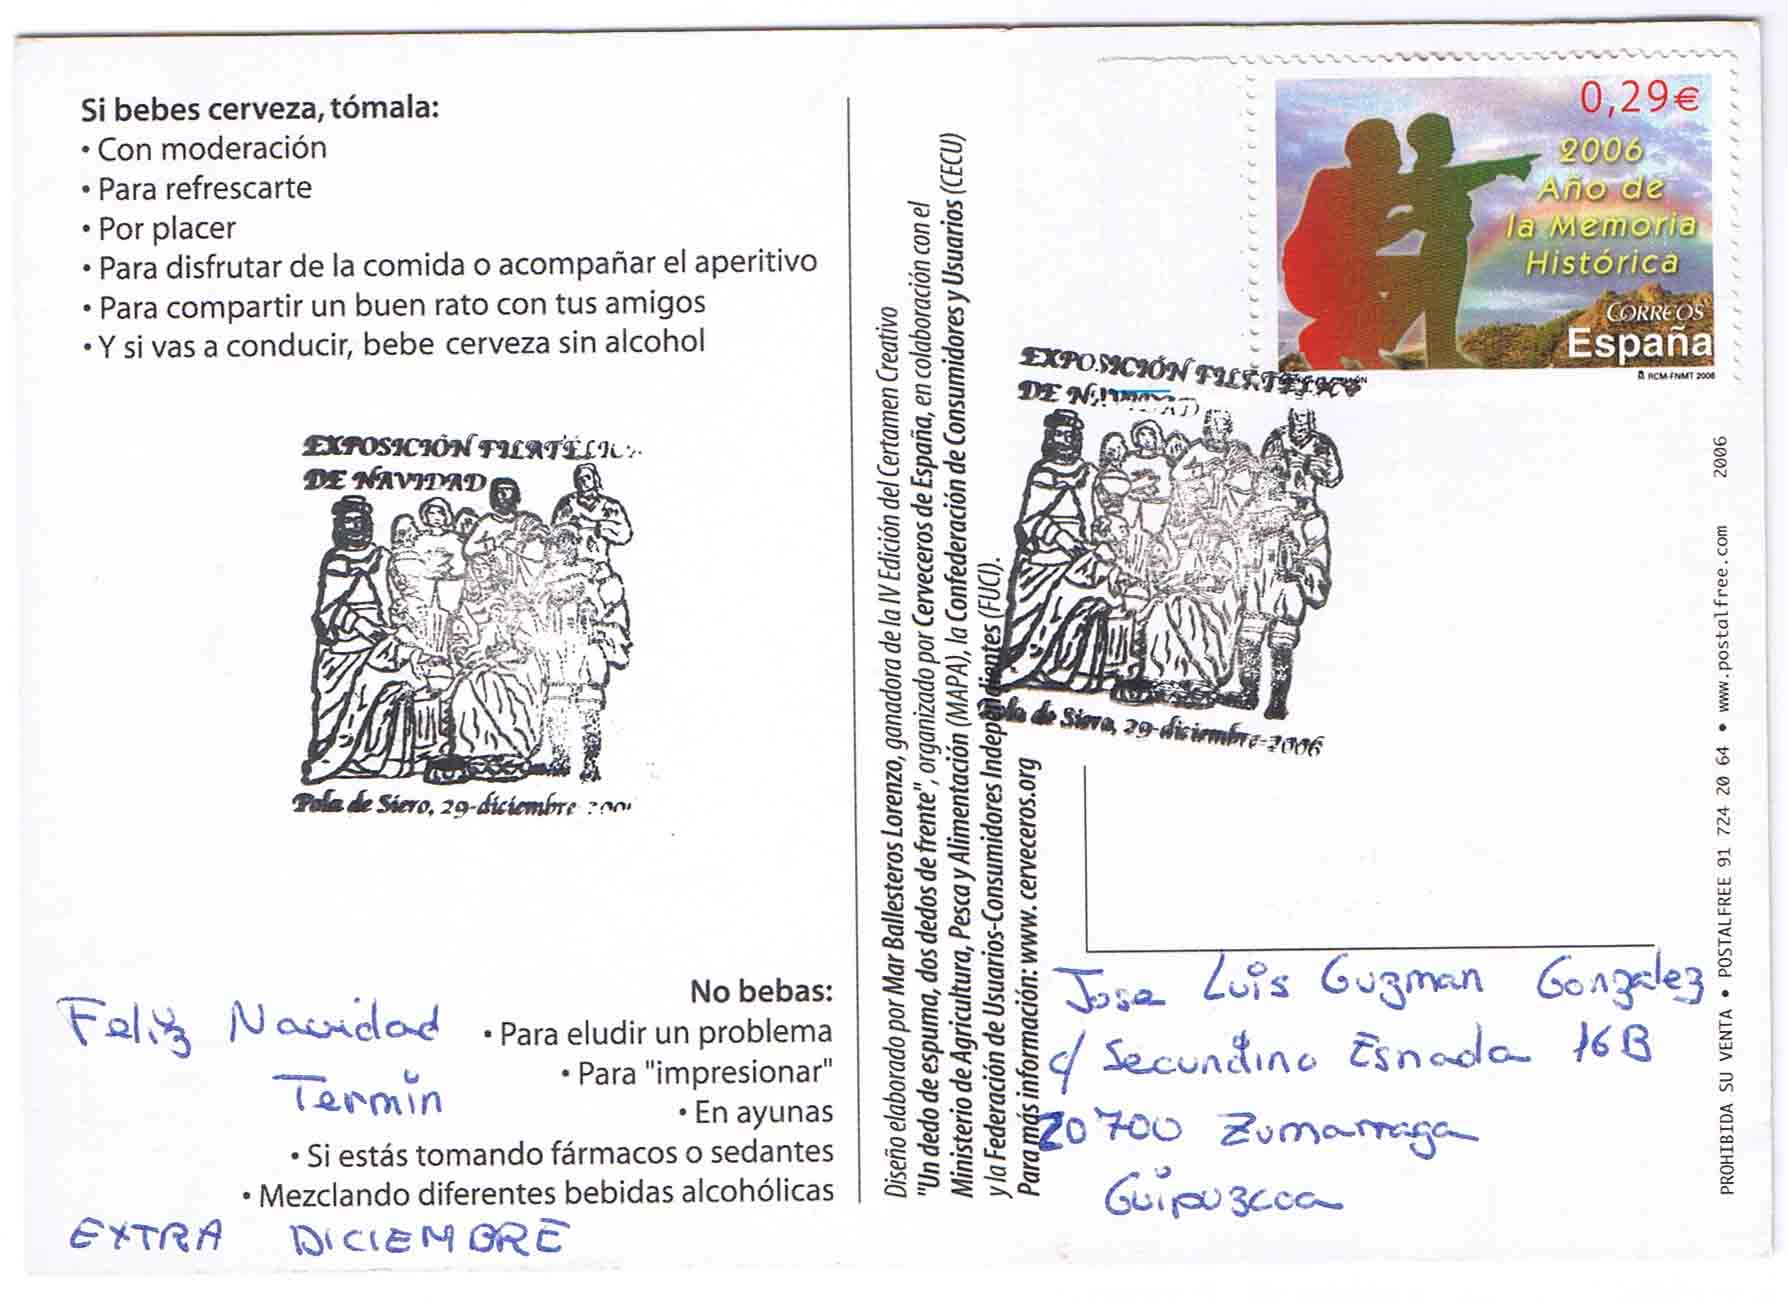 Si bebes cerveza, tómala:
• Con moderación
• Para refrescarte
• Por placer
• Para disfrutar de la comida o acompañar el aperitivo
• Para compartir un buen rato con tus amigos
• Y si vas a conducir, bebe cerveza sin alcohol
EXPOSICIÓN FILATÉLIC
DE NAVIDAD
Pola de Siero, 29-diciembre
No bebas:
• Para eludir un problema
• Para "impresionar"
• En ayunas
• Si estás tomando fármacos o sedantes
• Mezclando diferentes bebidas alcohólicas
Feliz Navidad
Termin
EXTRA DICIEMBRE
Diseño elaborado por Mar Ballesteros Lorenzo, ganadora de la IV Edición del Certamen Creativo
"Un dedo de espuma, dos dedos de frente", organizado por Cerveceros de España, en colaboración con el
Ministerio de Agricultura, Pesca y Alimentación (MAPA), la Confederación de Consumidores y Usuarios (CECU)
y la Federación de Usuarios-Consumidores Independientes (FUCI).
Para más información: www.cerveceros.org
0,29€
2006
Año de
la Memoria
Histórica
CORREOS
España
RCM-FNMT 2006
EXPOSICIÓN FILATÉLICA
DE NAVIDAD
Pola de Siero, 29-diciembre-2006
Jose Luis Guzman Gonzalez
c/ Secundino Esnada 16B
20700 Zumarraga
Guipuzcoa
PROHIBIDA SU VENTA • POSTALFREE 91 724 20 64 • www.postalfree.com 2006